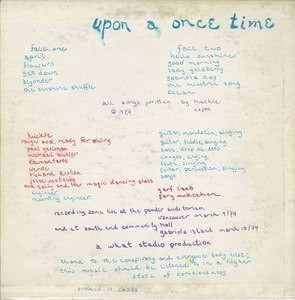 upon a once time
face one
april
flowers
get down
beyonder
the sunshine shuffle
face two
hello sunshine
good morning
lady goldberg
gabriola day
the minstrel song
ocean
all songs written by huckle
capac
huckle
hugh god, ready for swing
paul gellman
michael
wende
richard
jesse
and sally and her magic dancing shoes
engineer
recording engineer
guitar, mandolin, singing
guitar, fiddle, singing
bass,
congas, singing
flute, singing
guitar, percussion, singing
banjo
gary mckeehan
recording done live at the ponder auditorium
vancouver march 9/74
and at south end community hall
gabriola island march 10/74
a what studio production
thanx to the conspiracy and everyone body else;
this music should be listened to in a higher
state of consciousness
printed in canada